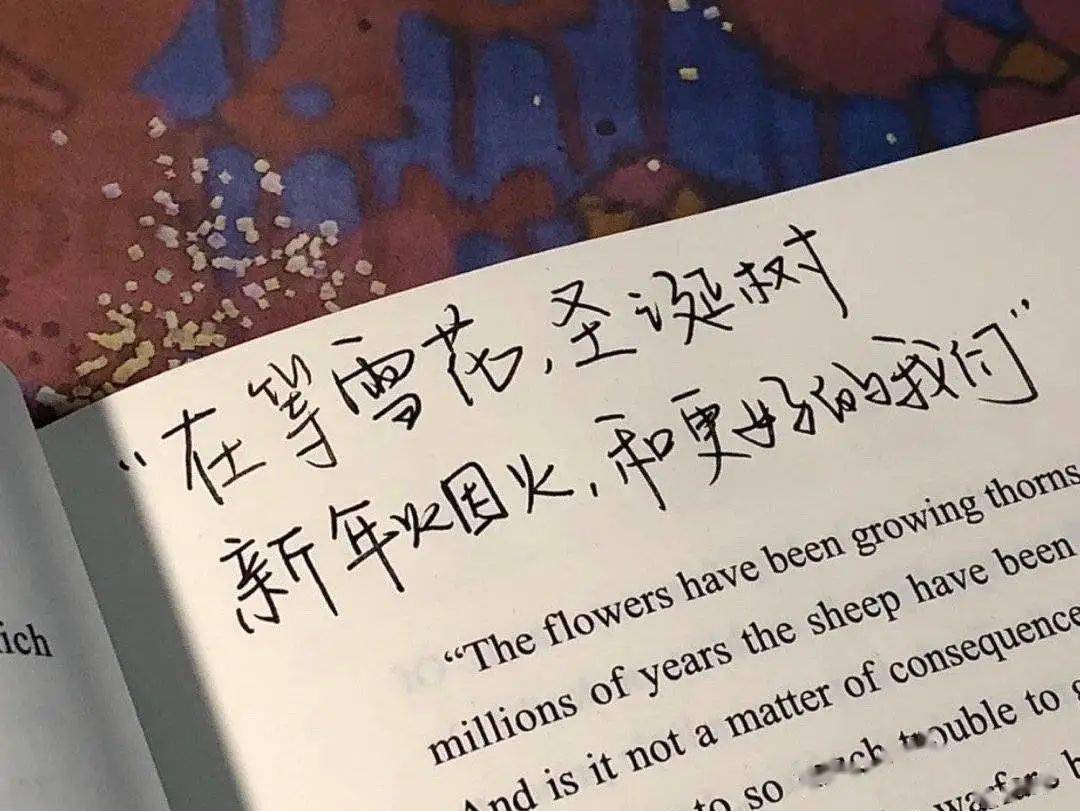 “在等雪花,圣诞树
新年烟火,和更好的我们”
ich
“The flowers have been growing thorns
millions of years the sheep have been
And is it not a matter of consequence
to so trouble to